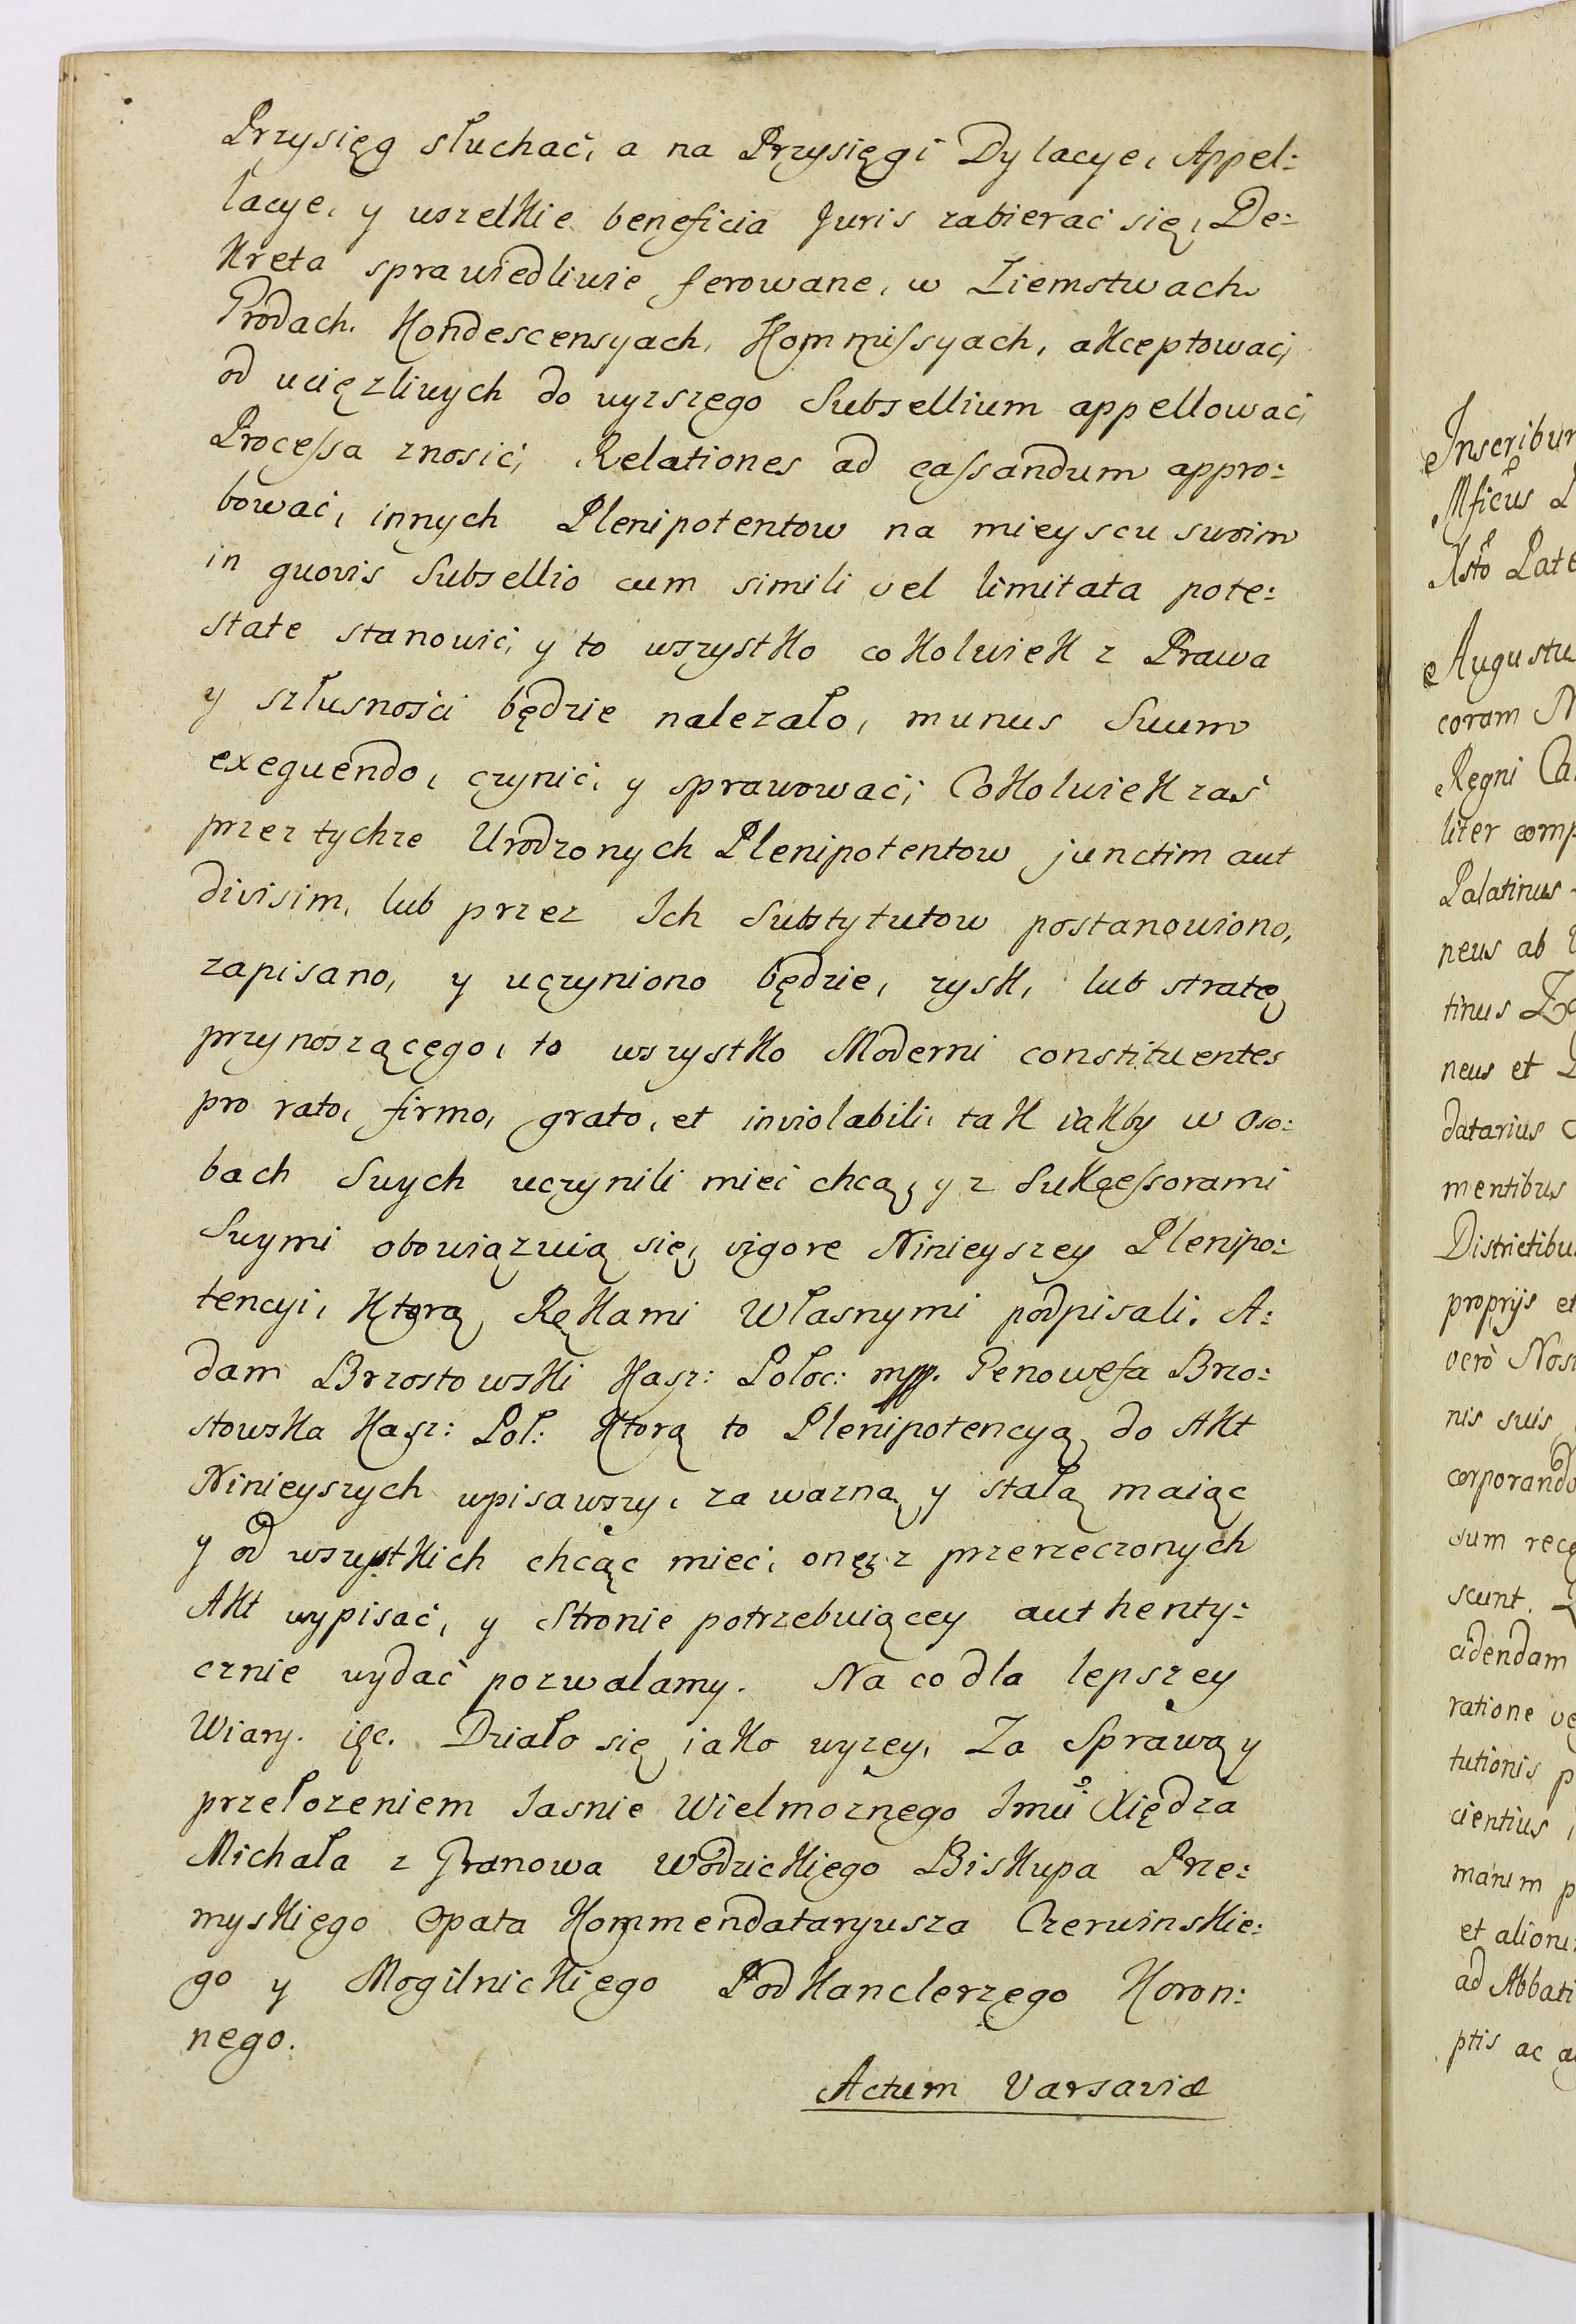 Przysięg słuchać, a na Przysięgi Dylacye, Appel:
lacye, y wszelkie beneficia Juris zabierać się, De:
kreta sprawiedliwie ferowane, w Ziemstwach
Grodach. Kondescensyach, Kommissyach, akceptować,
od ucięzliwych do wyzszego Subsellium appellować,
Processa znosić, Relationes ad cassandum appro:
bować, innych Plenipotentow na mieyscu swoim
in quovis Subsellio cum simili vel limitata pote:
state stanowić, y to wszystko cokolwiek z Prawa
y szłusności będzie nalezało, munus Suum
exequendo, czynić, y sprawować; Cokolwiek zaś
przez tychze Urodzonych Plenipotentow junctim aut
divisim, lub przez Ich Substytutow postanowiono,
zapisano, y uczyniono będzie, zysk, lub stratę
przynoszącego, to wszystko Moderni constituentes
pro rato, firmo, grato, et inviolabili, tak iakby w oso:
bach Swych uczynili mieć chcą, y z Sukcessorami
Swymi obowiązuią się, vigore Ninieyszey Plenipo:
tencyi, Ktorą Rękami Własnymi podpisali. A:
dam Brzostowski Kasz: Połoc: mpp. Genowefa Brzo:
stowska Kasz: Poł: Ktorą to Plenipotencyą do Akt
Ninieyszych wpisawszy, za wazną y stałą maiąc
y od wszystkich chcąc mieć, onęz z przerzeczonych
Akt wypisać, y Stronie potrzebuiącey authenty:
cznie wydać pozwalamy. Na co dla lepszey
Wiary. &c. Działo się iako wyzey, Za Sprawą y
przełozeniem Jasnie Wielmoznego Jmci Xiędza
Michała z Granowa Wodzickiego Biskupa Prze:
myskiego Opata Kommendataryusza Czerwinskie:
go y Mogilnickiego Podkanclerzego Koron:
nego.
Actum Varsaviæ
Inscribun
Mficus
Xsto Pate
Augustu
coram N
Regni Ca
liter comp
Palatinus
neus ab
tinus
neus et
datarius
mentibus
Districtibu
proprijs et
vero Nos
nis suis
corporando
sum rece
scunt.
cidendam
ratione ve
tutionis p
cientius
manim p
et aliorum
ad Abbati
ptis ac a